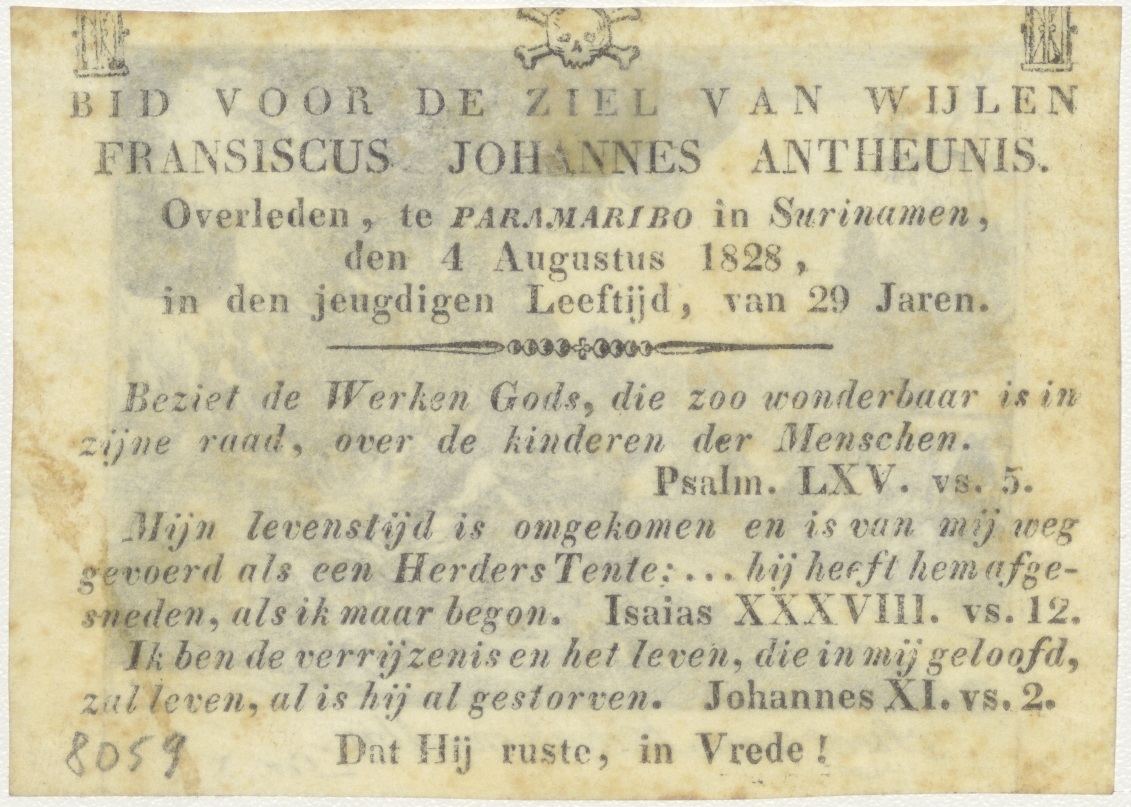 BID VOOR DE ZIEL VAN WIJLEN
FRANSISCUS JOHANNES ANTHEUNIS.
Overleden, te PARAMARIBO in Surinamen,
den 4 Augustus 1828,
in den jeugdigen Leeftijd, van 29 Jaren.
Beziet de Werken Gods, die zoo wonderbaar is in
zijne raad, over de kinderen der Menschen.
Psalm. LXV. vs. 5.
Mijn levenstijd is omgekomen en is van mij weg
gevoerd als een Herders Tente; ... hij heeft hem afge-
sneden, als ik maar begon. Isaias XXXVIII. vs. 12.
Ik ben de verrijzenis en het leven, die in mij geloofd,
zal leven, al is hij al gestorven. Johannes XI. vs. 2.
Dat Hij ruste, in Vrede!
8059